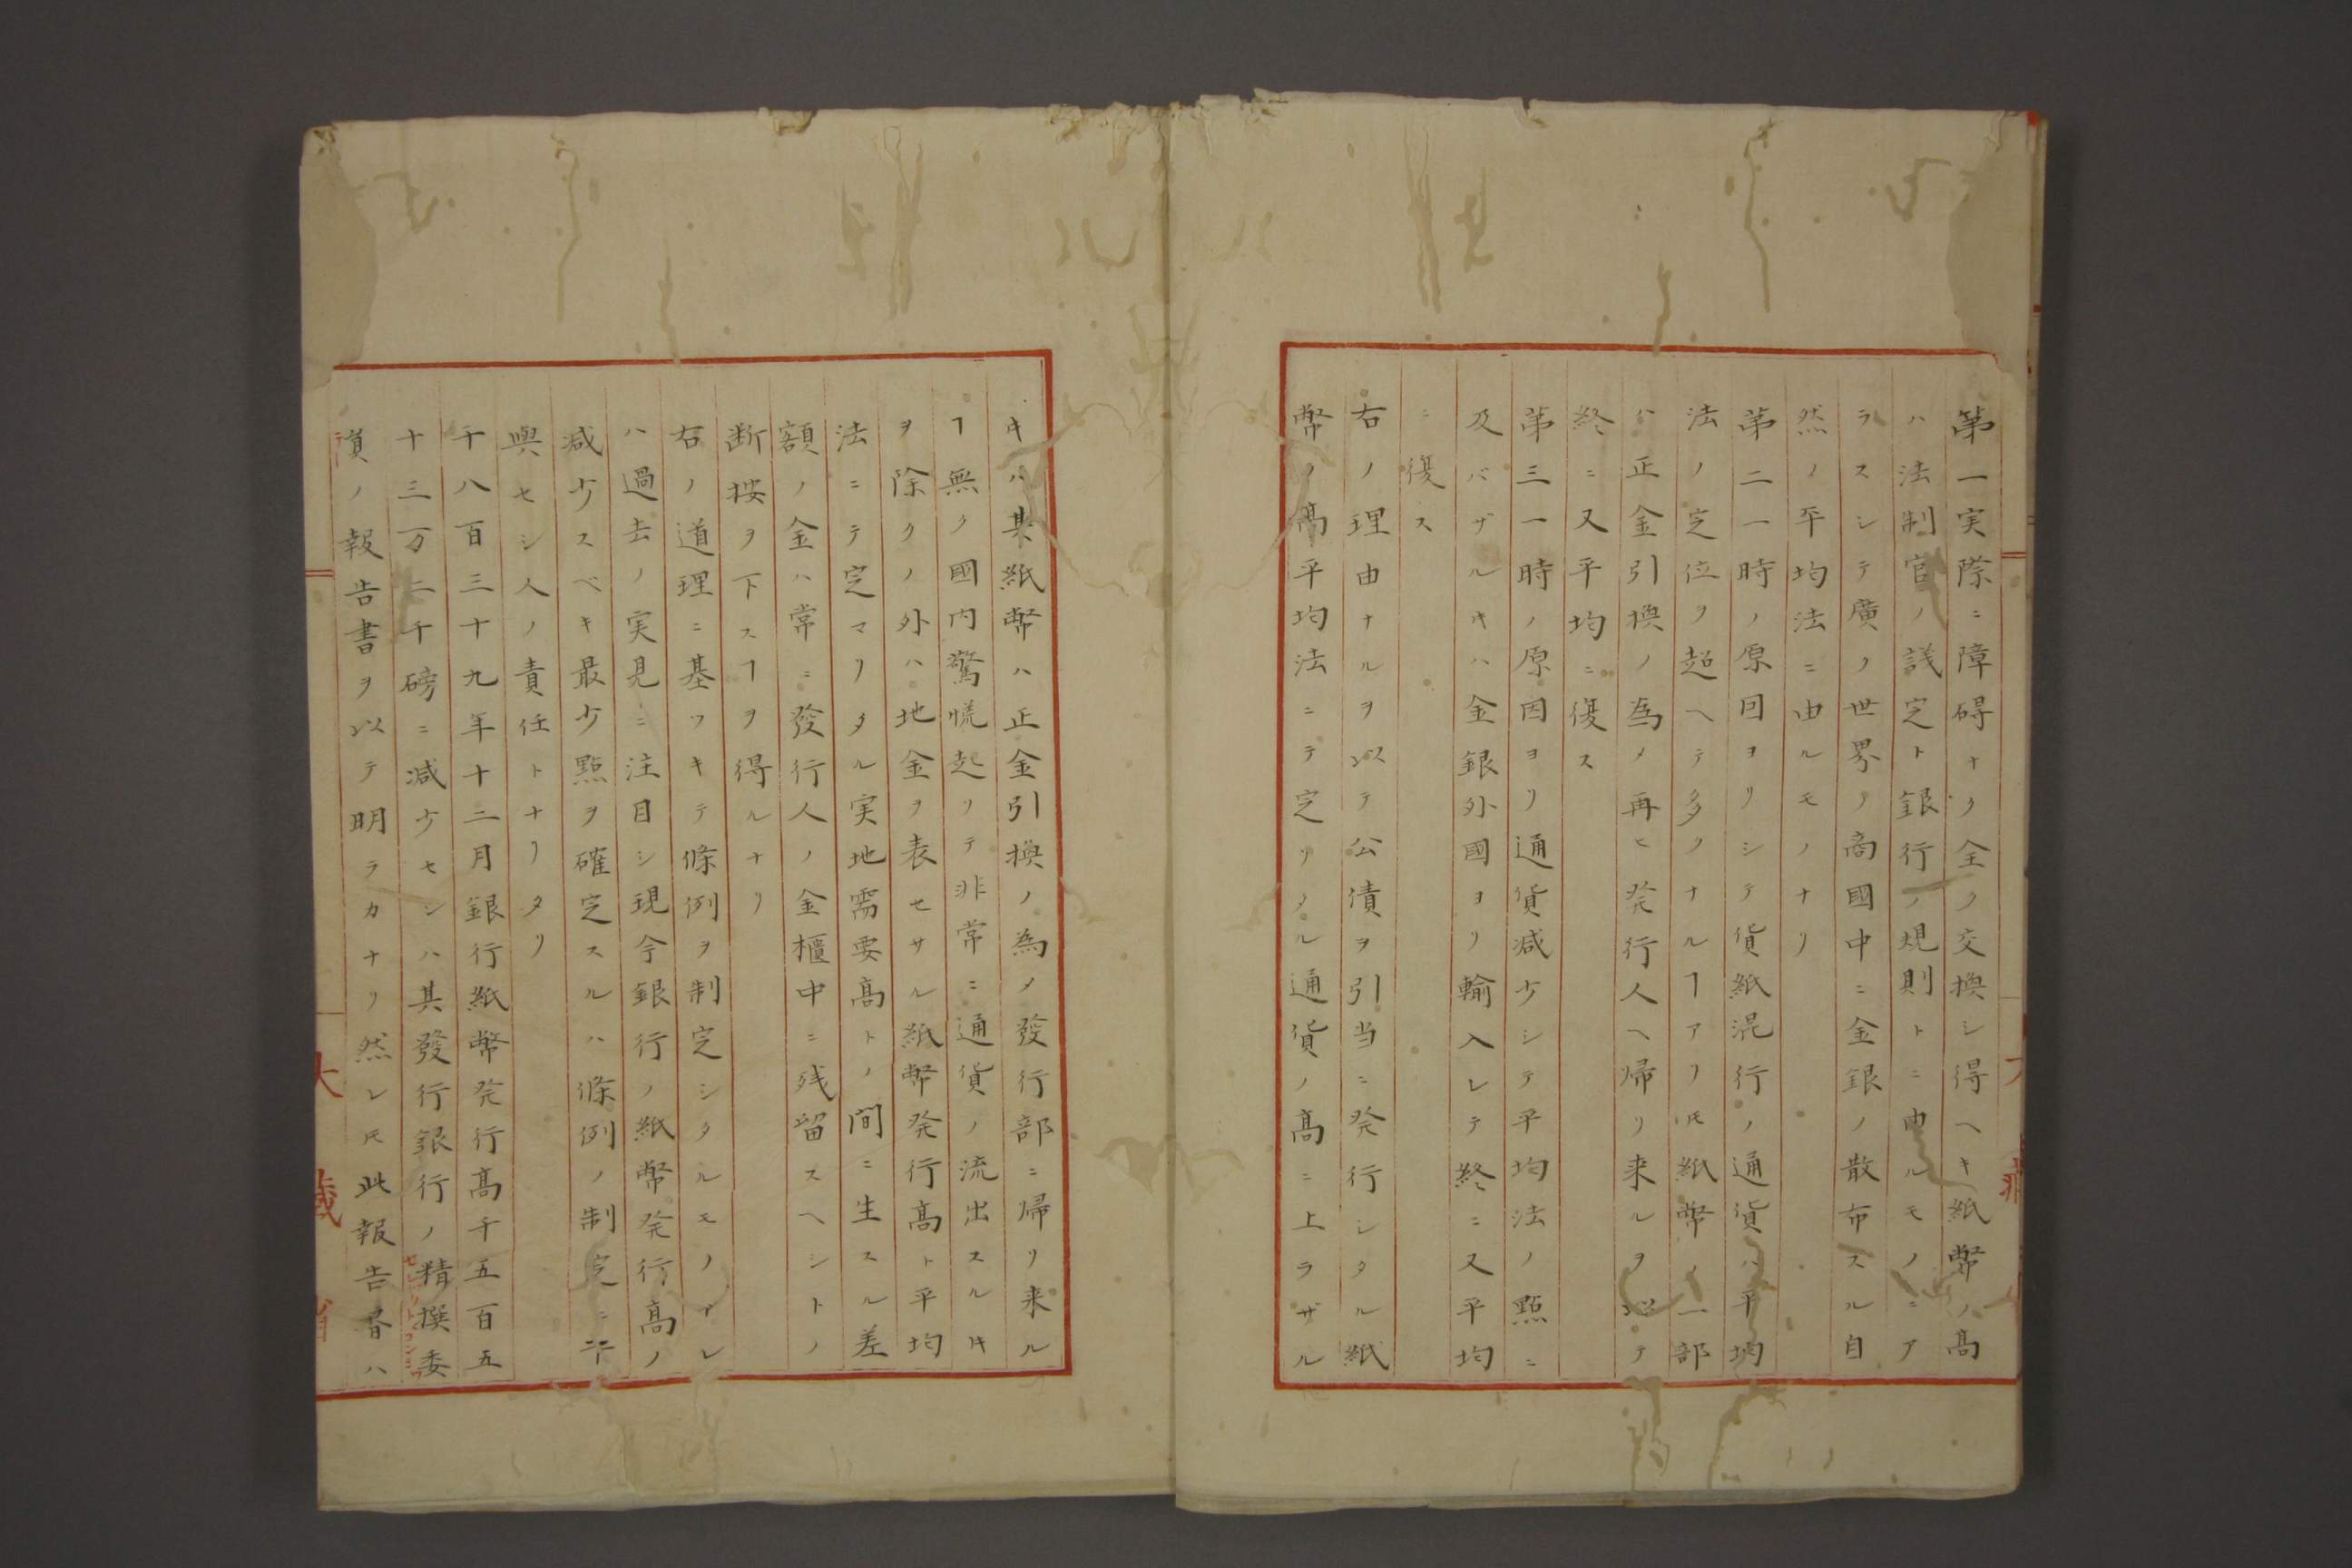 第一実際ニ障碍ナク全ク交換シ得ヘキ紙幣ノ高
ハ法制官ノ議定ト銀行ノ規則トニ由ルモノニア
ラスシテ廣ク世界ノ商國中ニ金銀ノ散布スル自
然ノ平均法ニ由ルモノナリ
第二一時ノ原因ヨリシテ貨紙混行ノ通貨ハ平均
法ノ定位ヲ超ヘテ多クナルヿアリ𪜈紙幣ノ一部
ハ正金引換ノ為メ再ヒ発行人ヘ帰リ来ルヲ以テ
終ニ又平均ニ復ス
第三一時ノ原因ヨリ通貨减少シテ平均法ノ點ニ
及バザルキハ金銀外國ヨリ輸入レテ終ニ又平均
ニ復ス
右ノ理由ナルヲ以テ公債ヲ引当ニ発行シタル紙
幣ノ高平均法ニテ定リタル通貨ノ高ニ上ラザル
キハ其紙幣ハ正金引換ノ為メ發行部ニ帰リ来ル
ヿ無ク國内驚慌起リテ非常ニ通貨ノ流出スルキ
ヲ除クノ外ハ地金ヲ表セサル紙幣発行高ト平均
法ニテ定マリタル実地需要高トノ間ニ生スル差
額ノ金ハ常ニ發行人ノ金櫃中ニ残留スヘシトノ
断按ヲ下スヿヲ得ルナリ
右ノ道理ニ基ツキテ條例ヲ制定シタルモノナレ
ハ過去ノ実見ニ注目シ現今銀行ノ紙幣発行高ノ
减少スベキ最少點ヲ確定スルハ條例ノ制定ニ干
與セシ人ノ責任トナリタリ
千八百三十九年十二月銀行紙幣発行高千五百五
十三万二千磅ニ减少セシハ其發行銀行ノ精撰委
員ノ報告書ヲ以テ明ラカナリ然レ𪜈此報告書ハ
大藏省